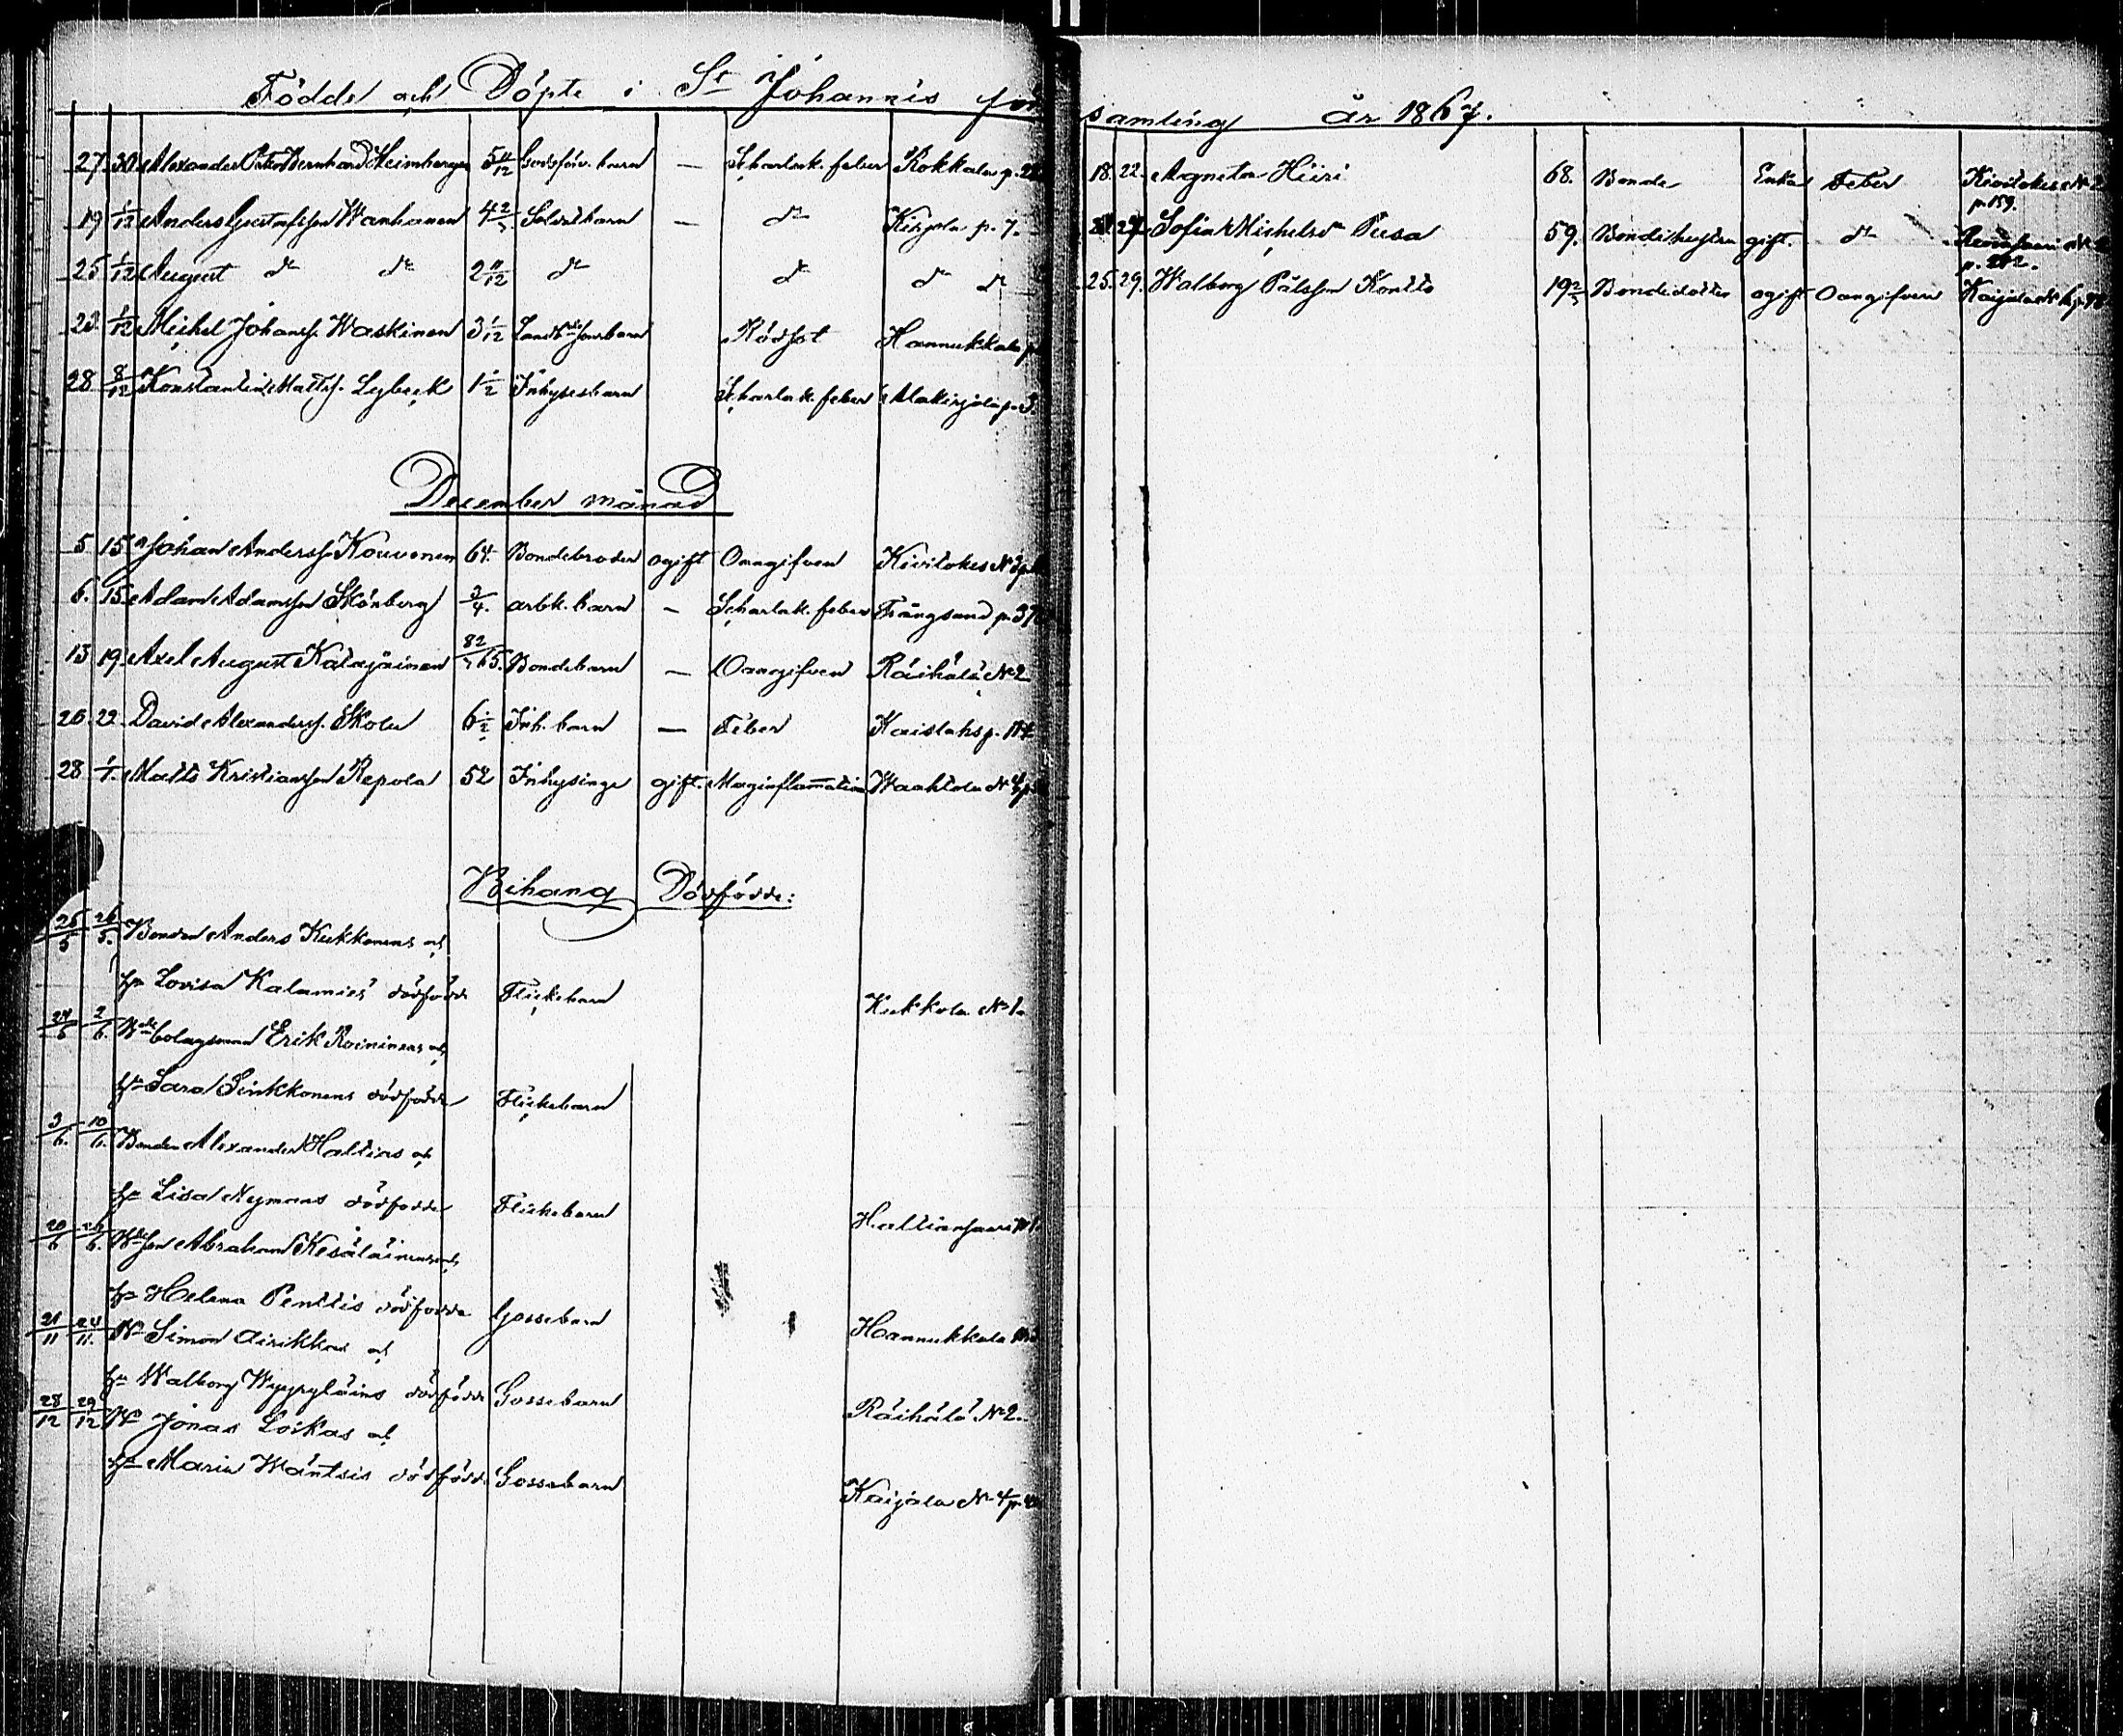 Födde och Döpte i St Johannis för
27. 30. Alexander Bernhard Heimberger 5 11/12 barn — Scharlak. feber Rokkala p. 22
19 1/12 Anders Gustafsson Wanhanen 4 2/3 Soldat barn — do Kirjola p. 7.
25 1/12 August do do 2 11/12 do do do do
23 1/12 Michel Johanss. Waskinen 3 1/12 barn Rödsot Hannukkala p
28 8/12 Konstantin Mattss. Lybeck 1 1/2 Inhysesbarn Scharlak. feber Alakirjola p. 3
December månad
5 15 Johan Anderss. Kouvonen 64. Bondebroder ogift Oangifven Kivilokes No 2
6. 15. Adam Adamsson Skönberg 3/4. arbk. barn — Scharlak. feber Trångsund p. 37
13 19 Axel August Kalajäinen 82/365. Bondebarn — Oangifven Räihälä No 2
26. 22. David Alexanderss. Skolu 6 1/2 Inh. barn — Feber Kaislahs p. 114
28 1/1. Matts Kristiansson Repola 52 Inhysinge gift. Maginflammation Waahtola No 4 p.
Bihang Dödfödde:
25/5 26/5. Bonden Anders Kukkonens och
hu Lovisa Kalamies' dödfödde Flickebarn Kukkola No 1.
24/5 2/6. Bde bolagsman Erik Roininens och
hu Sara Sinkkonens dödfödde Flickebarn
3/6. 10/6. Bonden Alexander Hallias och
hu Lisa Nymans dödfödde Flickebarn Halliansaari No 1.
20/6 26/6. Bdeson Abraham Kesäläinens och
hu Helena Penttis dödfödde Gossebarn Hannukkala No
21/11 24/11. Bde Simon Airikkas och
hu Walborg Wyyryläins dödfödde Gossebarn Räihälä No 2.
28/12 29/12 Bde Jonas Loikas och
hu Maria Wäntsis dödfödde Gossebarn Kaijala No 4 p.
samling år 1867.
18. 22. Agneta Hiiri 68. Bonde Enka Feber Kivilokes No 2
p. 159.
24. 27. Sofia Michelsdr Pusa 59. Bondehustru gift. do Revonsaari No
p. 212.
25. 29. Walborg Pålsson Kontto 19 2/3 Bondedotter ogift Oangifven Kaijala No